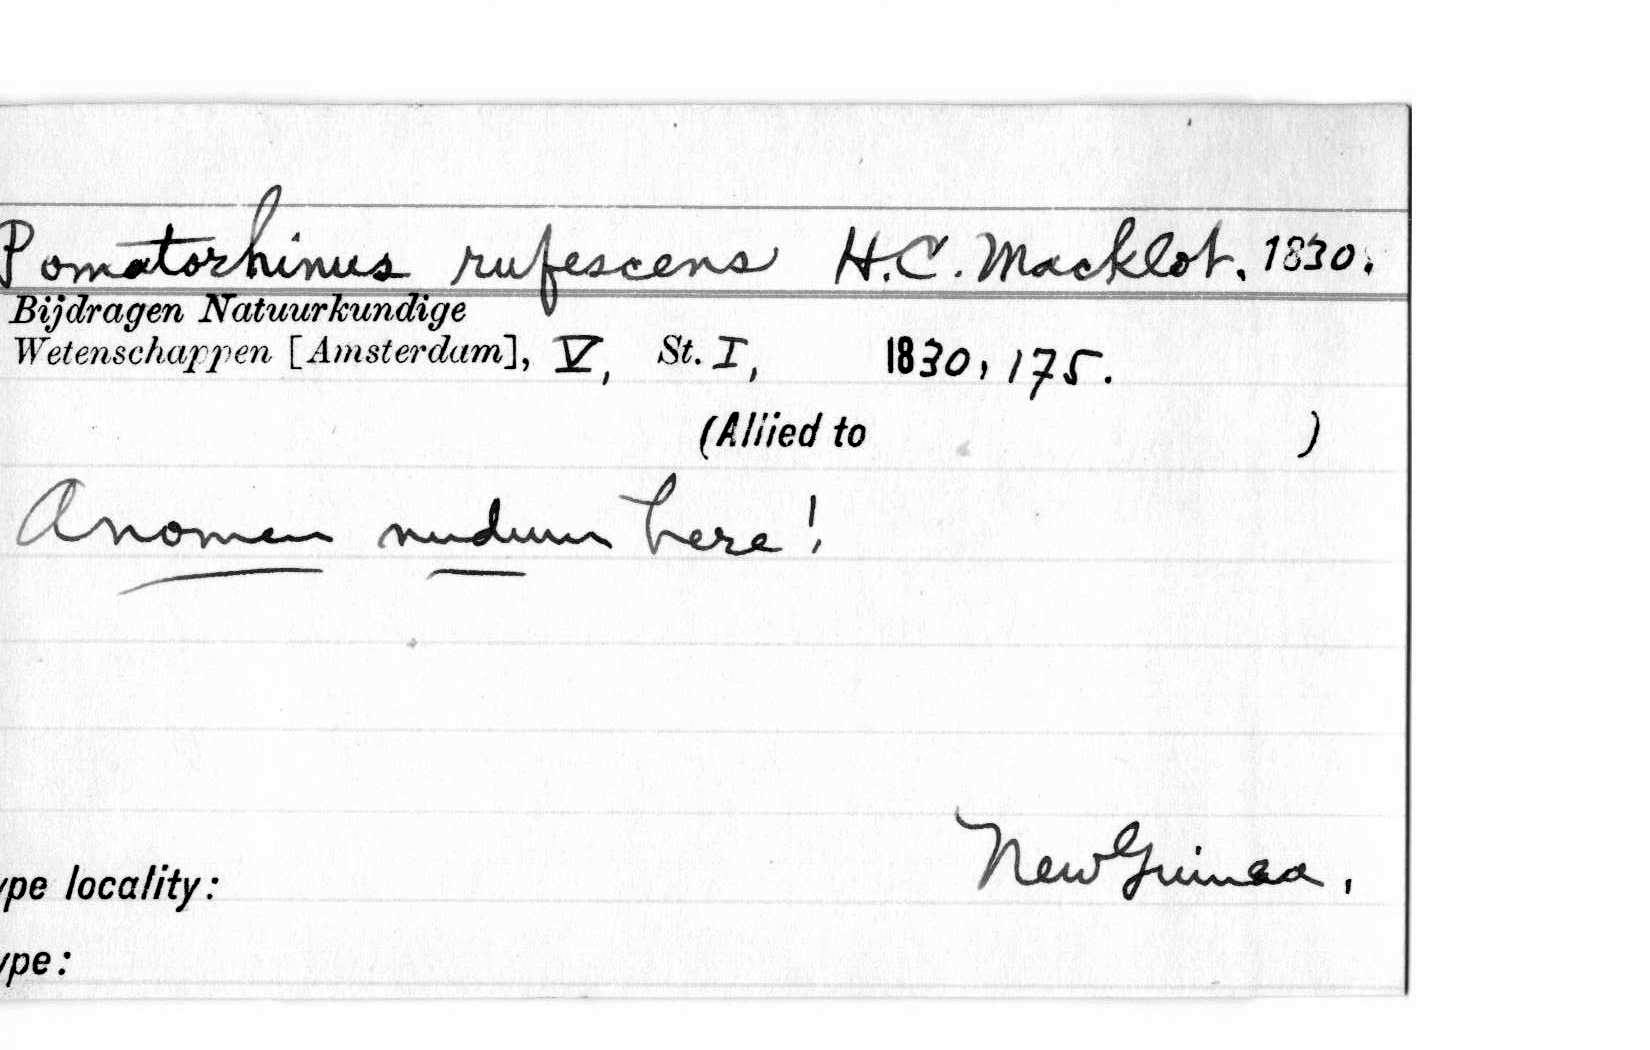 Pomatorhinus rufescens H.C. Macklot, 1830.
Bijdragen Natuurkundige
Wetenschappen [Amsterdam], V, St. I, 1830, 175.
(Allied to )
A nomen nudum here!
New Guinea,
ype locality:
ype: